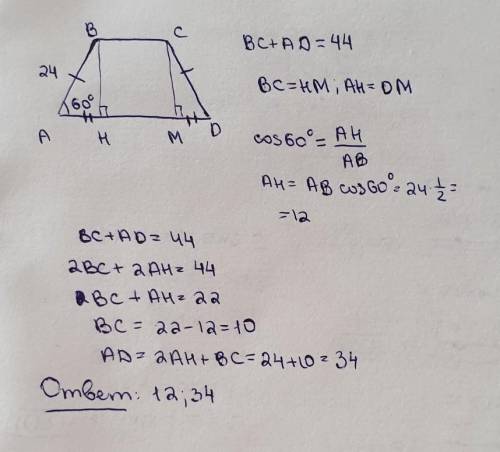 B C
BC+AD=44
24
BC=HM; AH=DM
60°
A H M D
cos60°= AH/AB
AH= AB cos60°=24·1/2=
=12
BC+AD=44
2BC+2AH=44
BC+AH=22
BC= 22-12=10
AD= 2AH+BC=24+10=34
Ответ: 12; 34